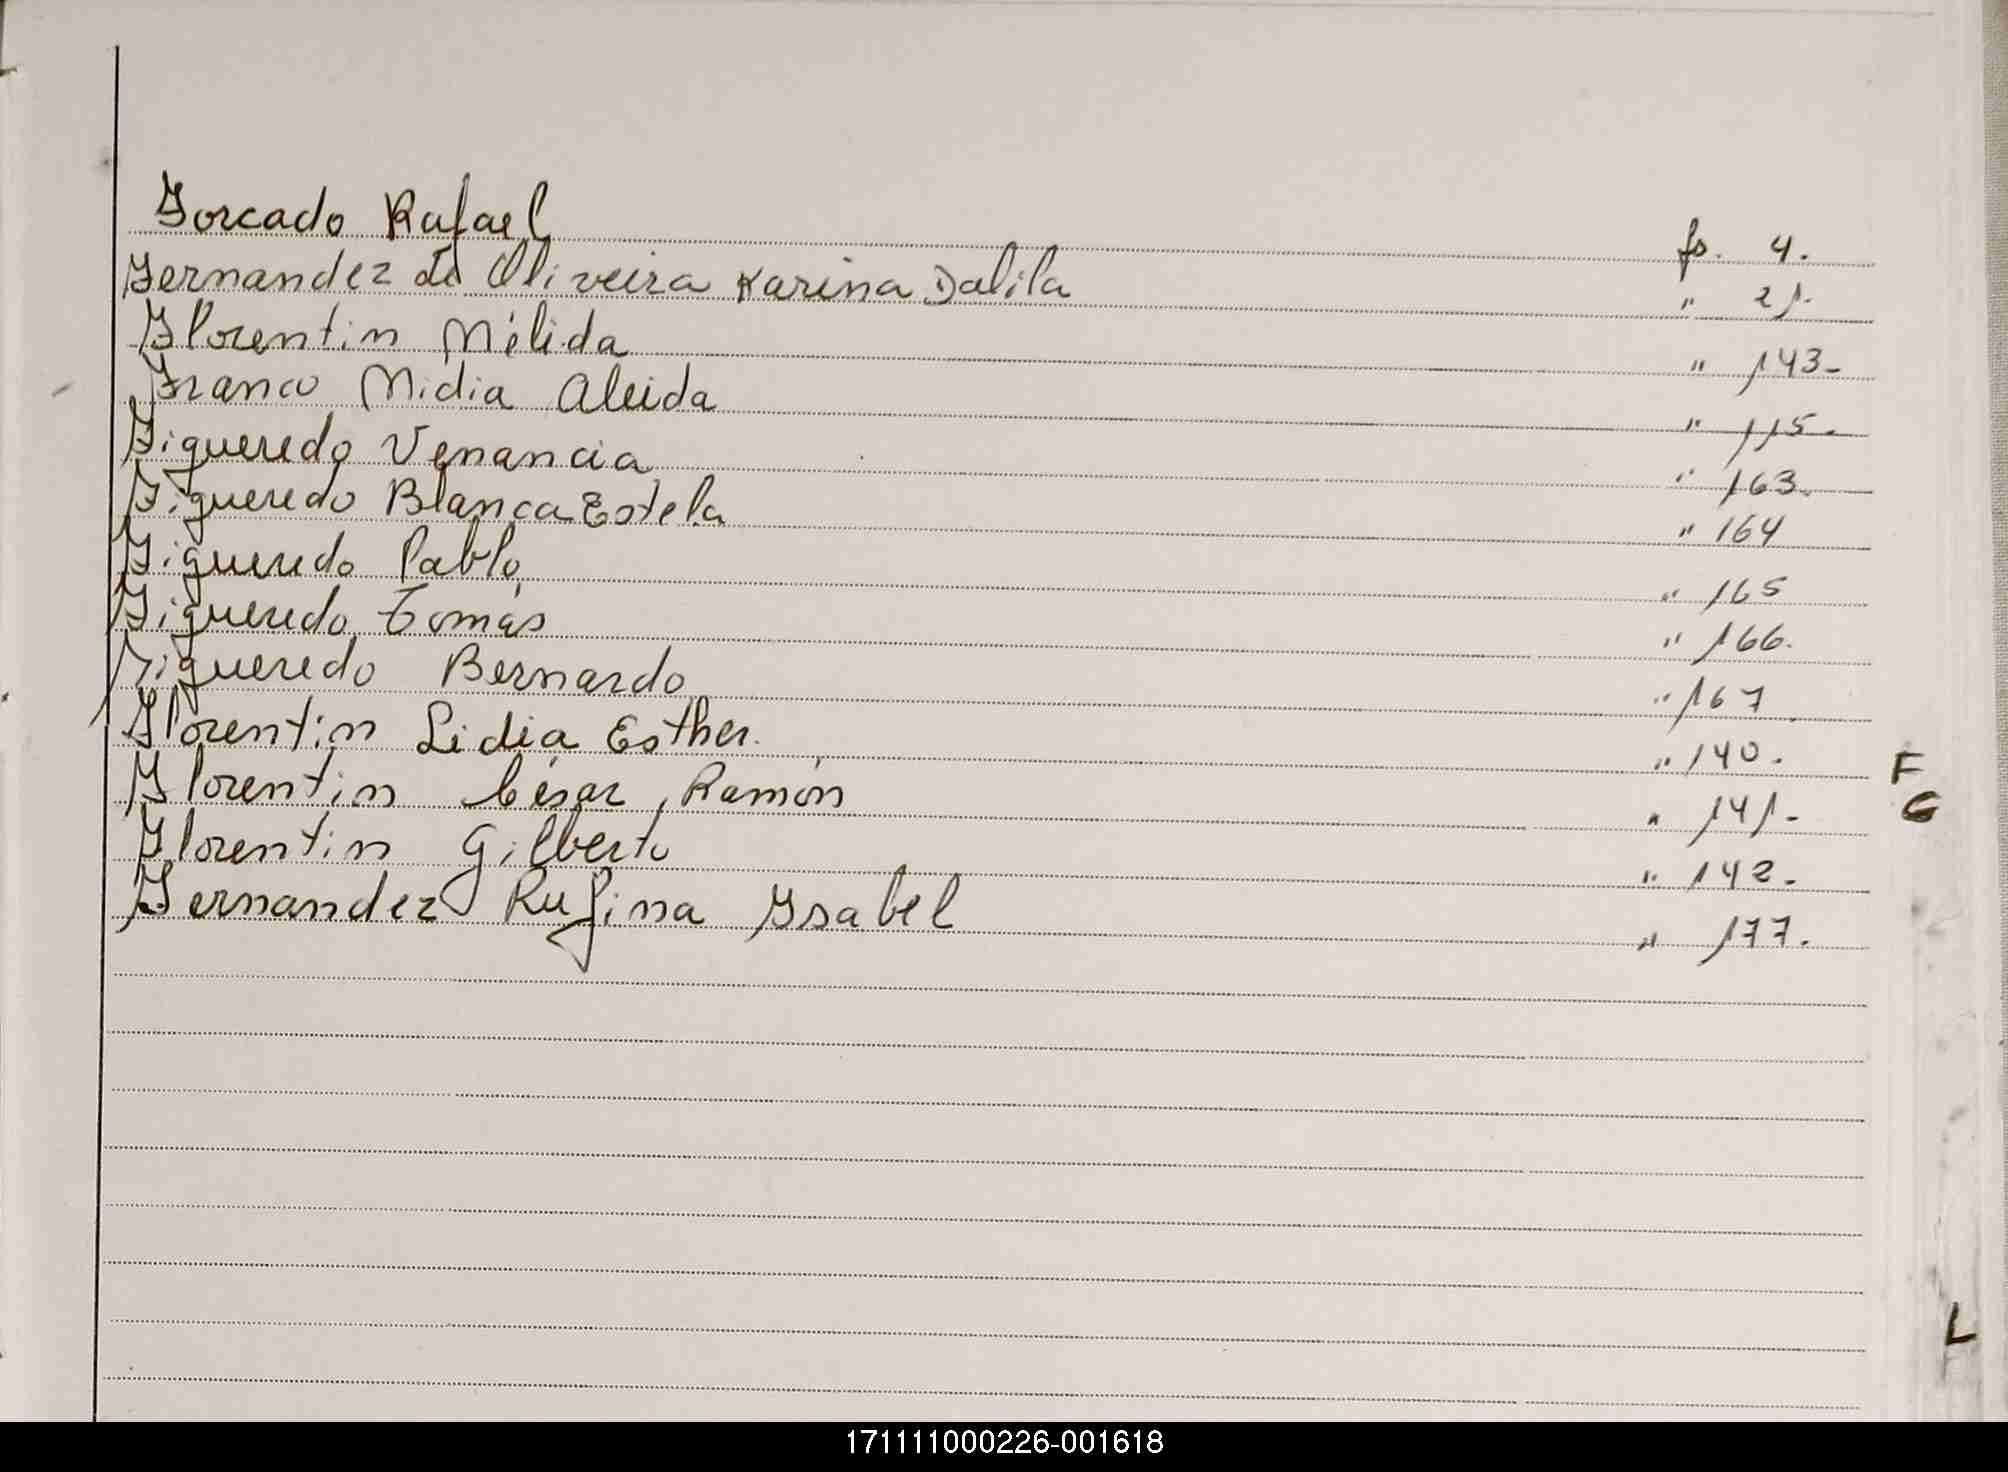 Forcado Rafael fo. 4.
Fernandez de Oliveira Karina Dalila " 21.
Florentin Mélida " 143-
Franco Nidia Aleida " 115.
Figueredo Venancia " 163.
Figueredo Blanca Estela " 164
Figueredo Pablo " 165
Figueredo Tomás " 166.
Figueredo Bernardo " 167
Florentin Lidia Esther. " 140.
Florentin César Ramón " 141-
Florentin Gilberto " 142.
Fernandez Rufina Ysabel " 177.
F
G
L
171111000226-001618